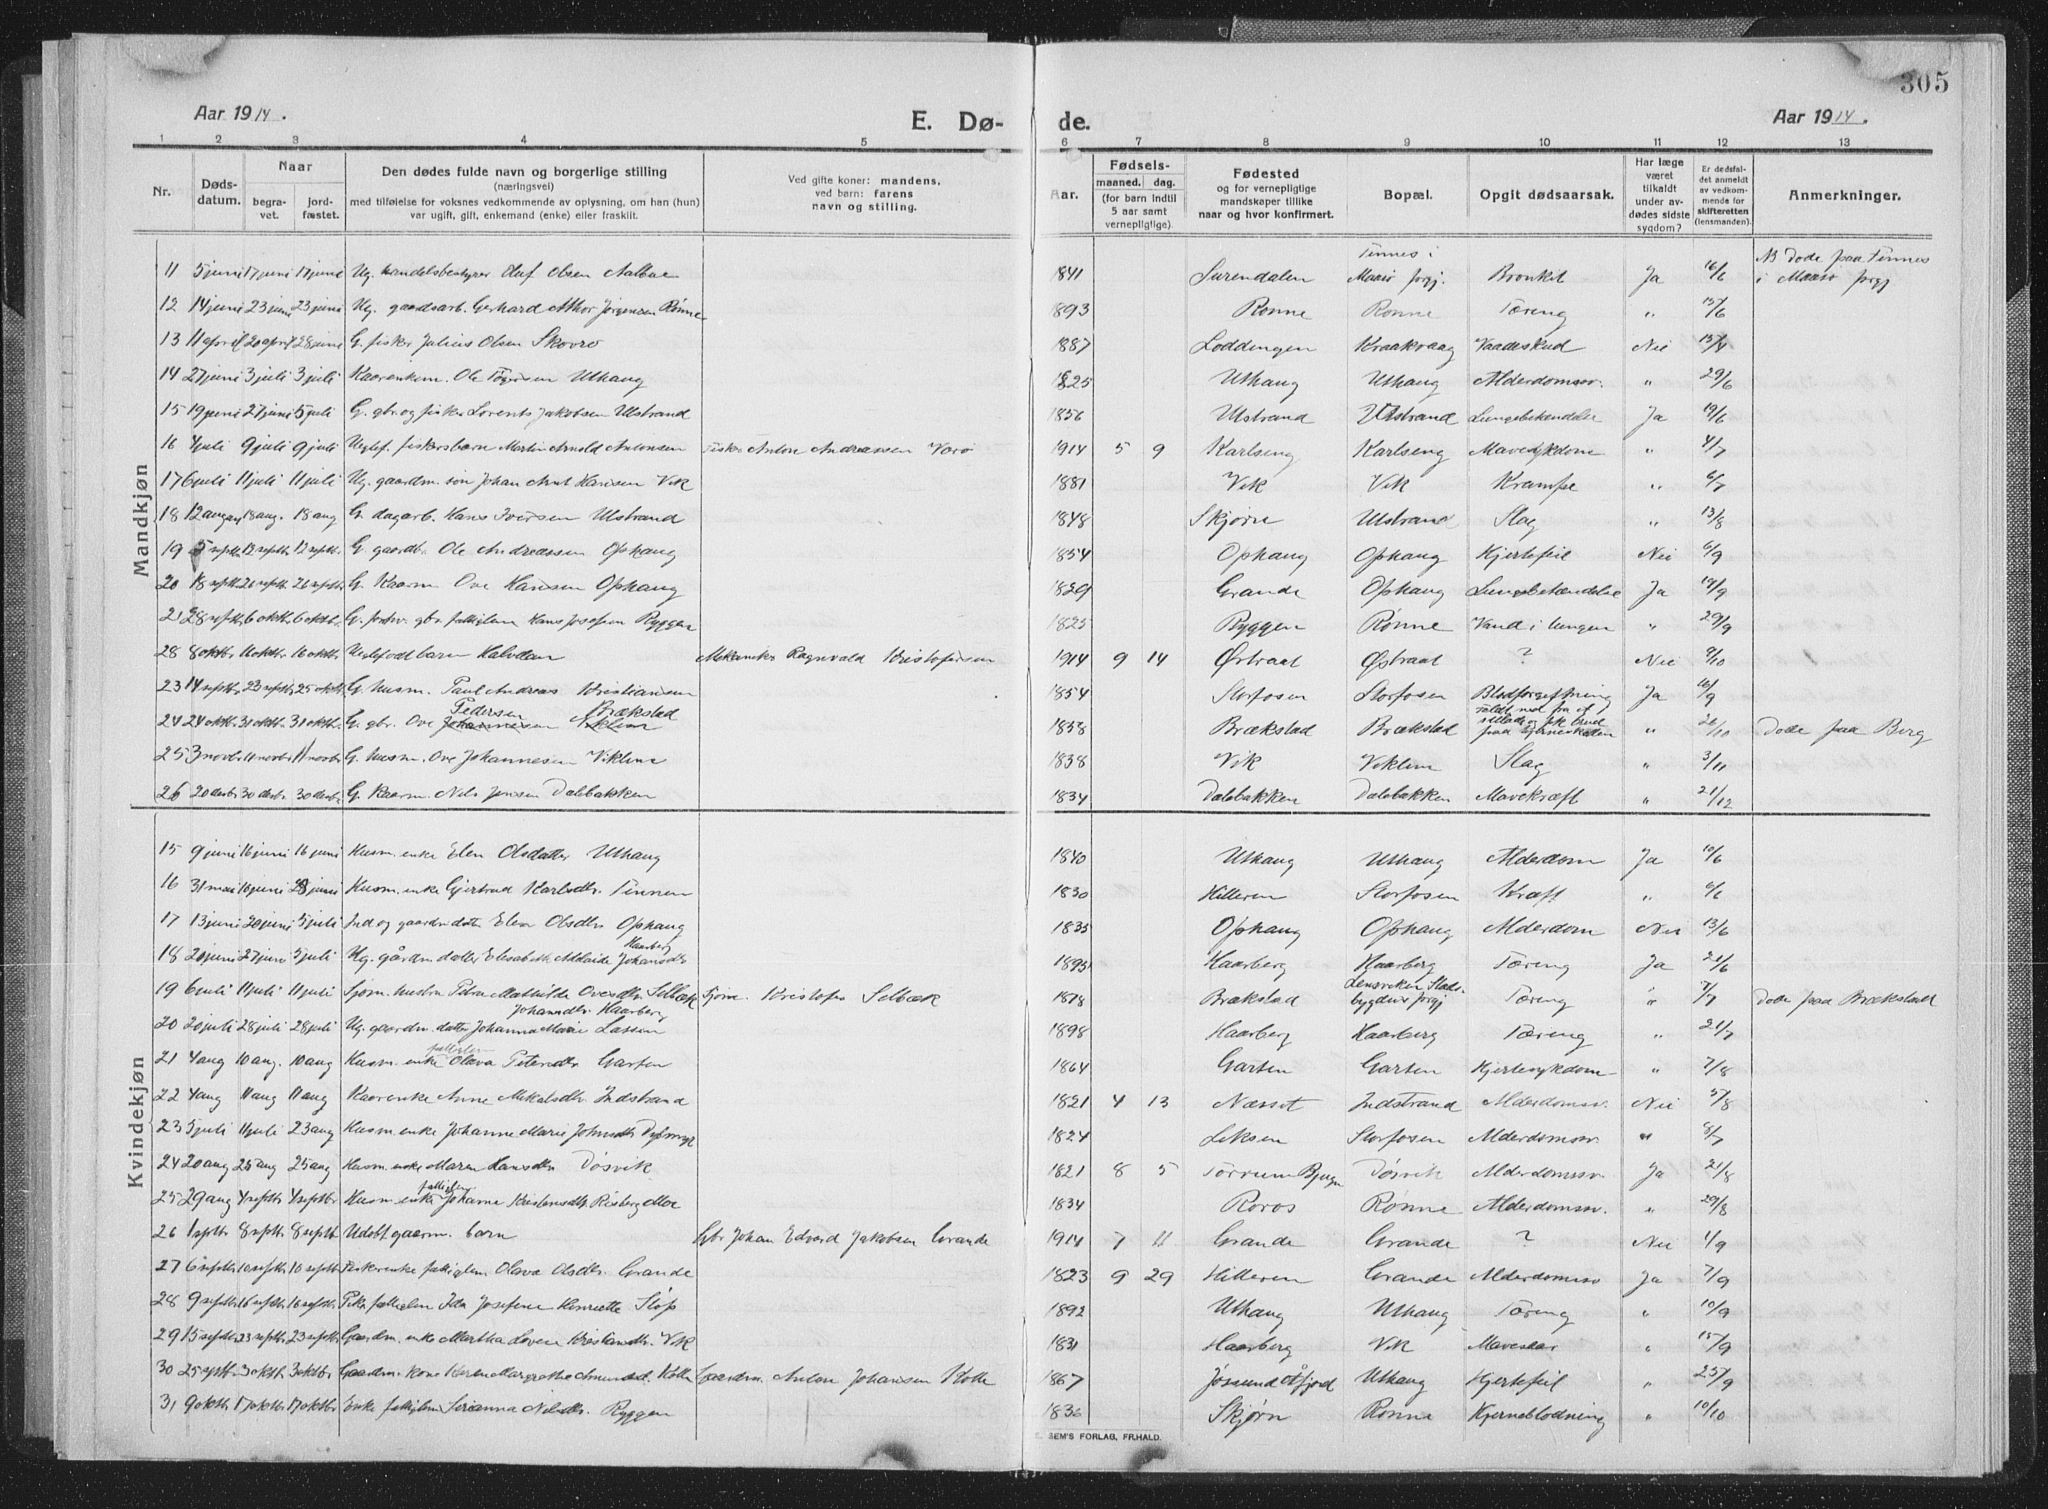 305
Aar 1914. E. Dø- de. Aar 1914.
1 2 3 4 5 6 7 8 9 10 11 12 13
Nr. Dødsdatum. Naar begravet. jordfæstet. Den dødes fulde navn og borgerlige stilling (næringsvei) med tilføielse for voksnes vedkommende av oplysning, om han (hun) var ugift, gift, enkemand (enke) eller fraskilt. Ved gifte koner: mandens, ved børn: farens navn og stilling. Aar. Fødsels- maaned. dag. (for barn indtil 5 aar samt vernepligtige). Fødested og for vernepligtige mandskaper tillike naar og hvor konfirmert. Bopæl. Opgit dødsaarsak. Har læge været tilkaldt under avdødes sidste sygdom? Er dødsfaldet anmeldt av vedkommende for skifteretten (lensmanden). Anmerkninger.
Mandkjøn
11 5 juni 17 juni 17 juni Ug. handelsbestyrer Oluf Olsen Aalbue 1841 Surendalen Finnes i Maasø prgj. Bronkit Ja 16/6 NB Døde paa Finnes i Maasø prgj
12 14 juni 23 juni 23 juni Ug. gaardsarb. Gerhard Athor Jørgensen Rønne 1893 Rønne Rønne Tæring " 15/6
13 11 april 20 april 28 juni G. fisker Julius Olsen Skovro 1887 Loddingen Kraakvaag Vaadeskud Nei 13/4
14 27 juni 3 juli 3 juli Kaarenkem. Ole Uthaug 1825 Uthaug Uthaug Alderdomssv. " 29/6
15 19 juni 27 juni 5 juli G. gbr. og fisker Lorents Jakobsen Ulstrand 1856 Ulstrand Ulstrand Lungebetændelse Ja 19/6
16 4 juli 9 juli 9 juli Uegtef. fiskersbarn Martin Arnold Antonsen Fisker Anton Andreassen Varø 1914 5 9 Karlseng Karlseng Mavesykdom " 4/7
17 6 juli 11 juli 11 juli Ug. gaardm. søn Johan Arnt Hansen Vik 1881 Vik Vik Krampe " 6/7
18 12 august 18 aug. 18 aug G. dagarb. Hans Iversen Ulstrand 1848 Skjørn Ulstrand Slag " 13/8
19 5 septbr. 12 septbr. 12 septbr. G. gaardbr. Ole Andreassen Ophaug 1854 Ophaug Ophaug Hjertefeil Nei 6/9
20 18 septbr. 26 septbr. 26 septbr. G. Kaarm Ove Hansen Ophaug 1829 Grande Ophaug Lungebetændelse Ja 19/9
21 28 septbr. 6 oktbr. 6 oktbr. G. forhv. gbr. fattiglem Hans Josefsen Ryggen 1825 Ryggen Rønne Vand i lungen " 29/9
28 8 oktbr 16 oktbr. 16 oktbr. Uegtefødt barn Halvdan Mekaniker Ragnvald Kristofersen 1914 9 14 Østraat Østraat ? Nei 9/10
23 14 septbr. 23 septbr. 25 oktbr. G. husm. Paul Andreas Kristiansen 1854 Storfosen Storfosen Blodforgeftning Ja 16/9
24 24 oktbr. 31 oktbr. 31 oktbr. G. gbr. Ove Johannesen Pedersen Viklem Brækstad 1858 Brækstad Brækstad Faldt ned fra et stillads og fik brud paa hjerneskallen " 26/10 Døde paa Berg
25 3 novbr. 11 novbr. 11 novbr. G. husm. Ove Johannesen Viklem 1838 Vik Viklem Slag " 3/11
26 20 decbr. 30 decbr. 30 decbr. G. Kaarm. Nils Jensen Dalebakken 1834 Dalebakken Dalebakken Mavekræft " 21/12
Kvindekjøn
15 9 juni 16 juni 16 juni Husm. enke Elen Olsdatter Uthaug 1840 Uthaug Uthaug Alderdom Ja 10/6
16 31 mai 10 juni 28 juni Husm. enke Gjertrud Karlsdtr. 1830 Hitteren Storfosen Kræft " 6/6
17 13 juni 20 juni 5 juli Ind og gaardm. datter Elen Olsdtr. Ophaug 1835 Ophaug Ophaug Alderdom Nei 13/6
18 20 juni 27 juni 5 juli Ug. gårdm datter Elisabeth Adelaide Johansdtr Haarberg 1893 Haarberg Haarberg Tæring Ja 21/6
19 6 juli 11 juli 11 juli Sjøm. hustru Petra Mathilde Ovesdtr. Selbæk Sjøm. Kristofer Selbæk 1878 Brækstad Lensviken Stadsbygdens prgj Tæring " 7/7 Døde paa Brækstad
20 20 juli 28 juli 28 juli Ug. gaardm. datter Johanna Marie Larsen Johannsdtr. Haarberg 1898 Haarberg Haarberg Tæring " 21/7
21 4 aug 10 aug. 10 aug Husm. enke fattiglem Olava Petersdtr. Garten 1864 Garten Garten Hjertesykdom " 7/8
22 4 aug 11 aug 11 aug Kaarenke Anne Mikalsdtr. Indstrand 1821 4 13 Næsset Indstrand Alderdomssv. Nei 5/8
23 5 juli 11 juli 23 aug Husm. enke Johanne Marie Johnsdtr Dybmyr 1824 Leksen Storfosen Alderdomssv. " 8/7
24 20 aug 25 aug 25 aug Husm. enke Maren Hansdtr. Døsvik 1821 8 5 Bjugn Døsvik Alderdomssv. Ja 21/8
25 29 aug 4 septbr 4 septbr Husm. enke fattiglem Johanna Kristensdtr. Risberg Moe 1834 Røros Rønne Alderdomssv. " 29/8
26 1 septbr. 8 septbr. 8 septbr Udøbt gaarm. barn Gbr Johan Edvard Jakobsen Grande 1914 7 11 Grande Grande ? Nei 4/9
27 6 septbr. 10 septbr. 10 septbr. Fiskerenke fattiglem Olava Olsdtr. Grande 1823 9 29 Hitteren Grande Alderdomssv Ja 7/9
28 9 septbr. 16 septbr. 16 septbr. Pike fattiglem Ida Josefine Henriette Sløp 1892 Uthaug Uthaug Tæring " 10/9
29 15 septbr. 23 septbr. 23 septbr. Gaardm. enke Martha Lovise Kristiandtr. Vik 1831 Haarberg Vik Mavesaar " 15/9
30 25 septbr. 3 oktbr. 3 oktbr. Gaardm. kone Karen Margrethe Amundsd. Kotte Gaardm. Anton Johansen Kotte 1867 Jøssund Åfjord Uthaug Hjertefeil " 25/9
31 9 oktbr. 17 oktbr. 17 oktbr Enke fattiglem Serianna Nilsdtr. Ryggen 1836 Skjørn Rønne Hjerneblødning " 10/10
SEM'S FORLAG, FR.HALD.